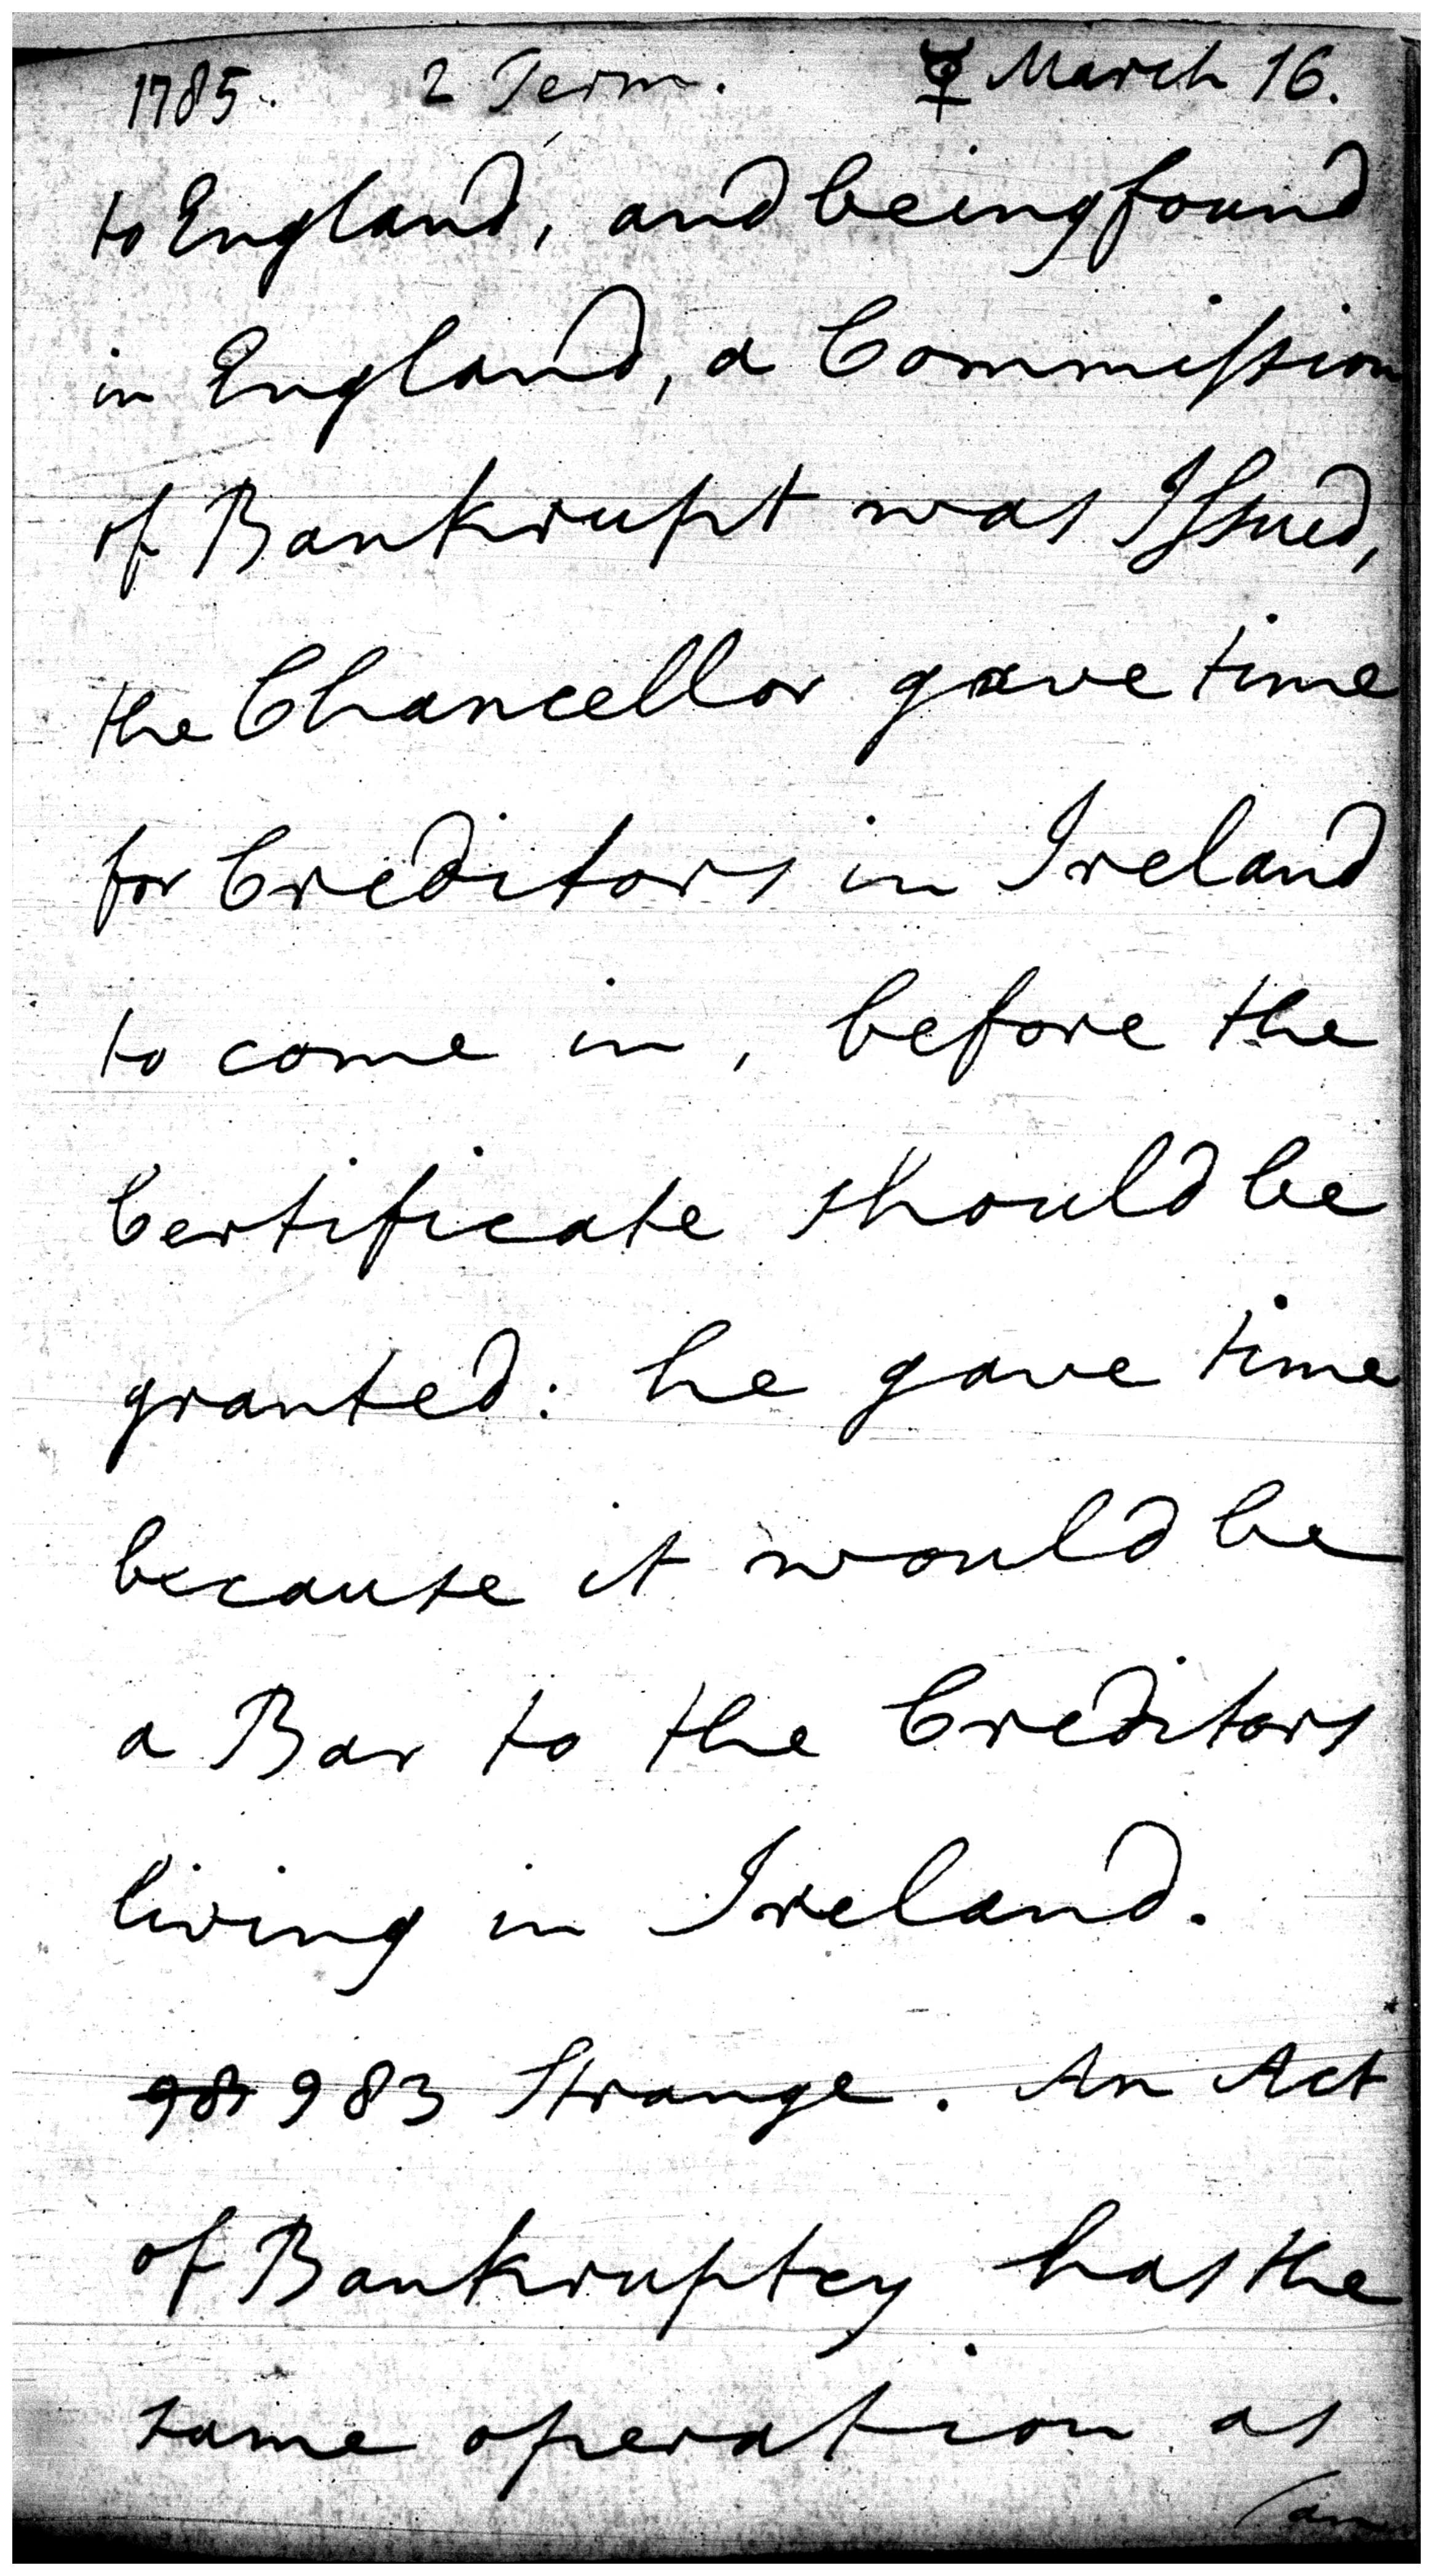 1785. 2 Term. ☿ March 16.
to England, and being found
in England, a Commiſsion
of Bankrupt was Iſsued,
the Chancellor gave time
for Creditors in Ireland
to come in, before the
Certificate should be
granted: he gave time
because it would be
a Bar to the Creditors
living in Ireland.
983 Strange. An Act
of Bankruptcy has the
same operation as
(an